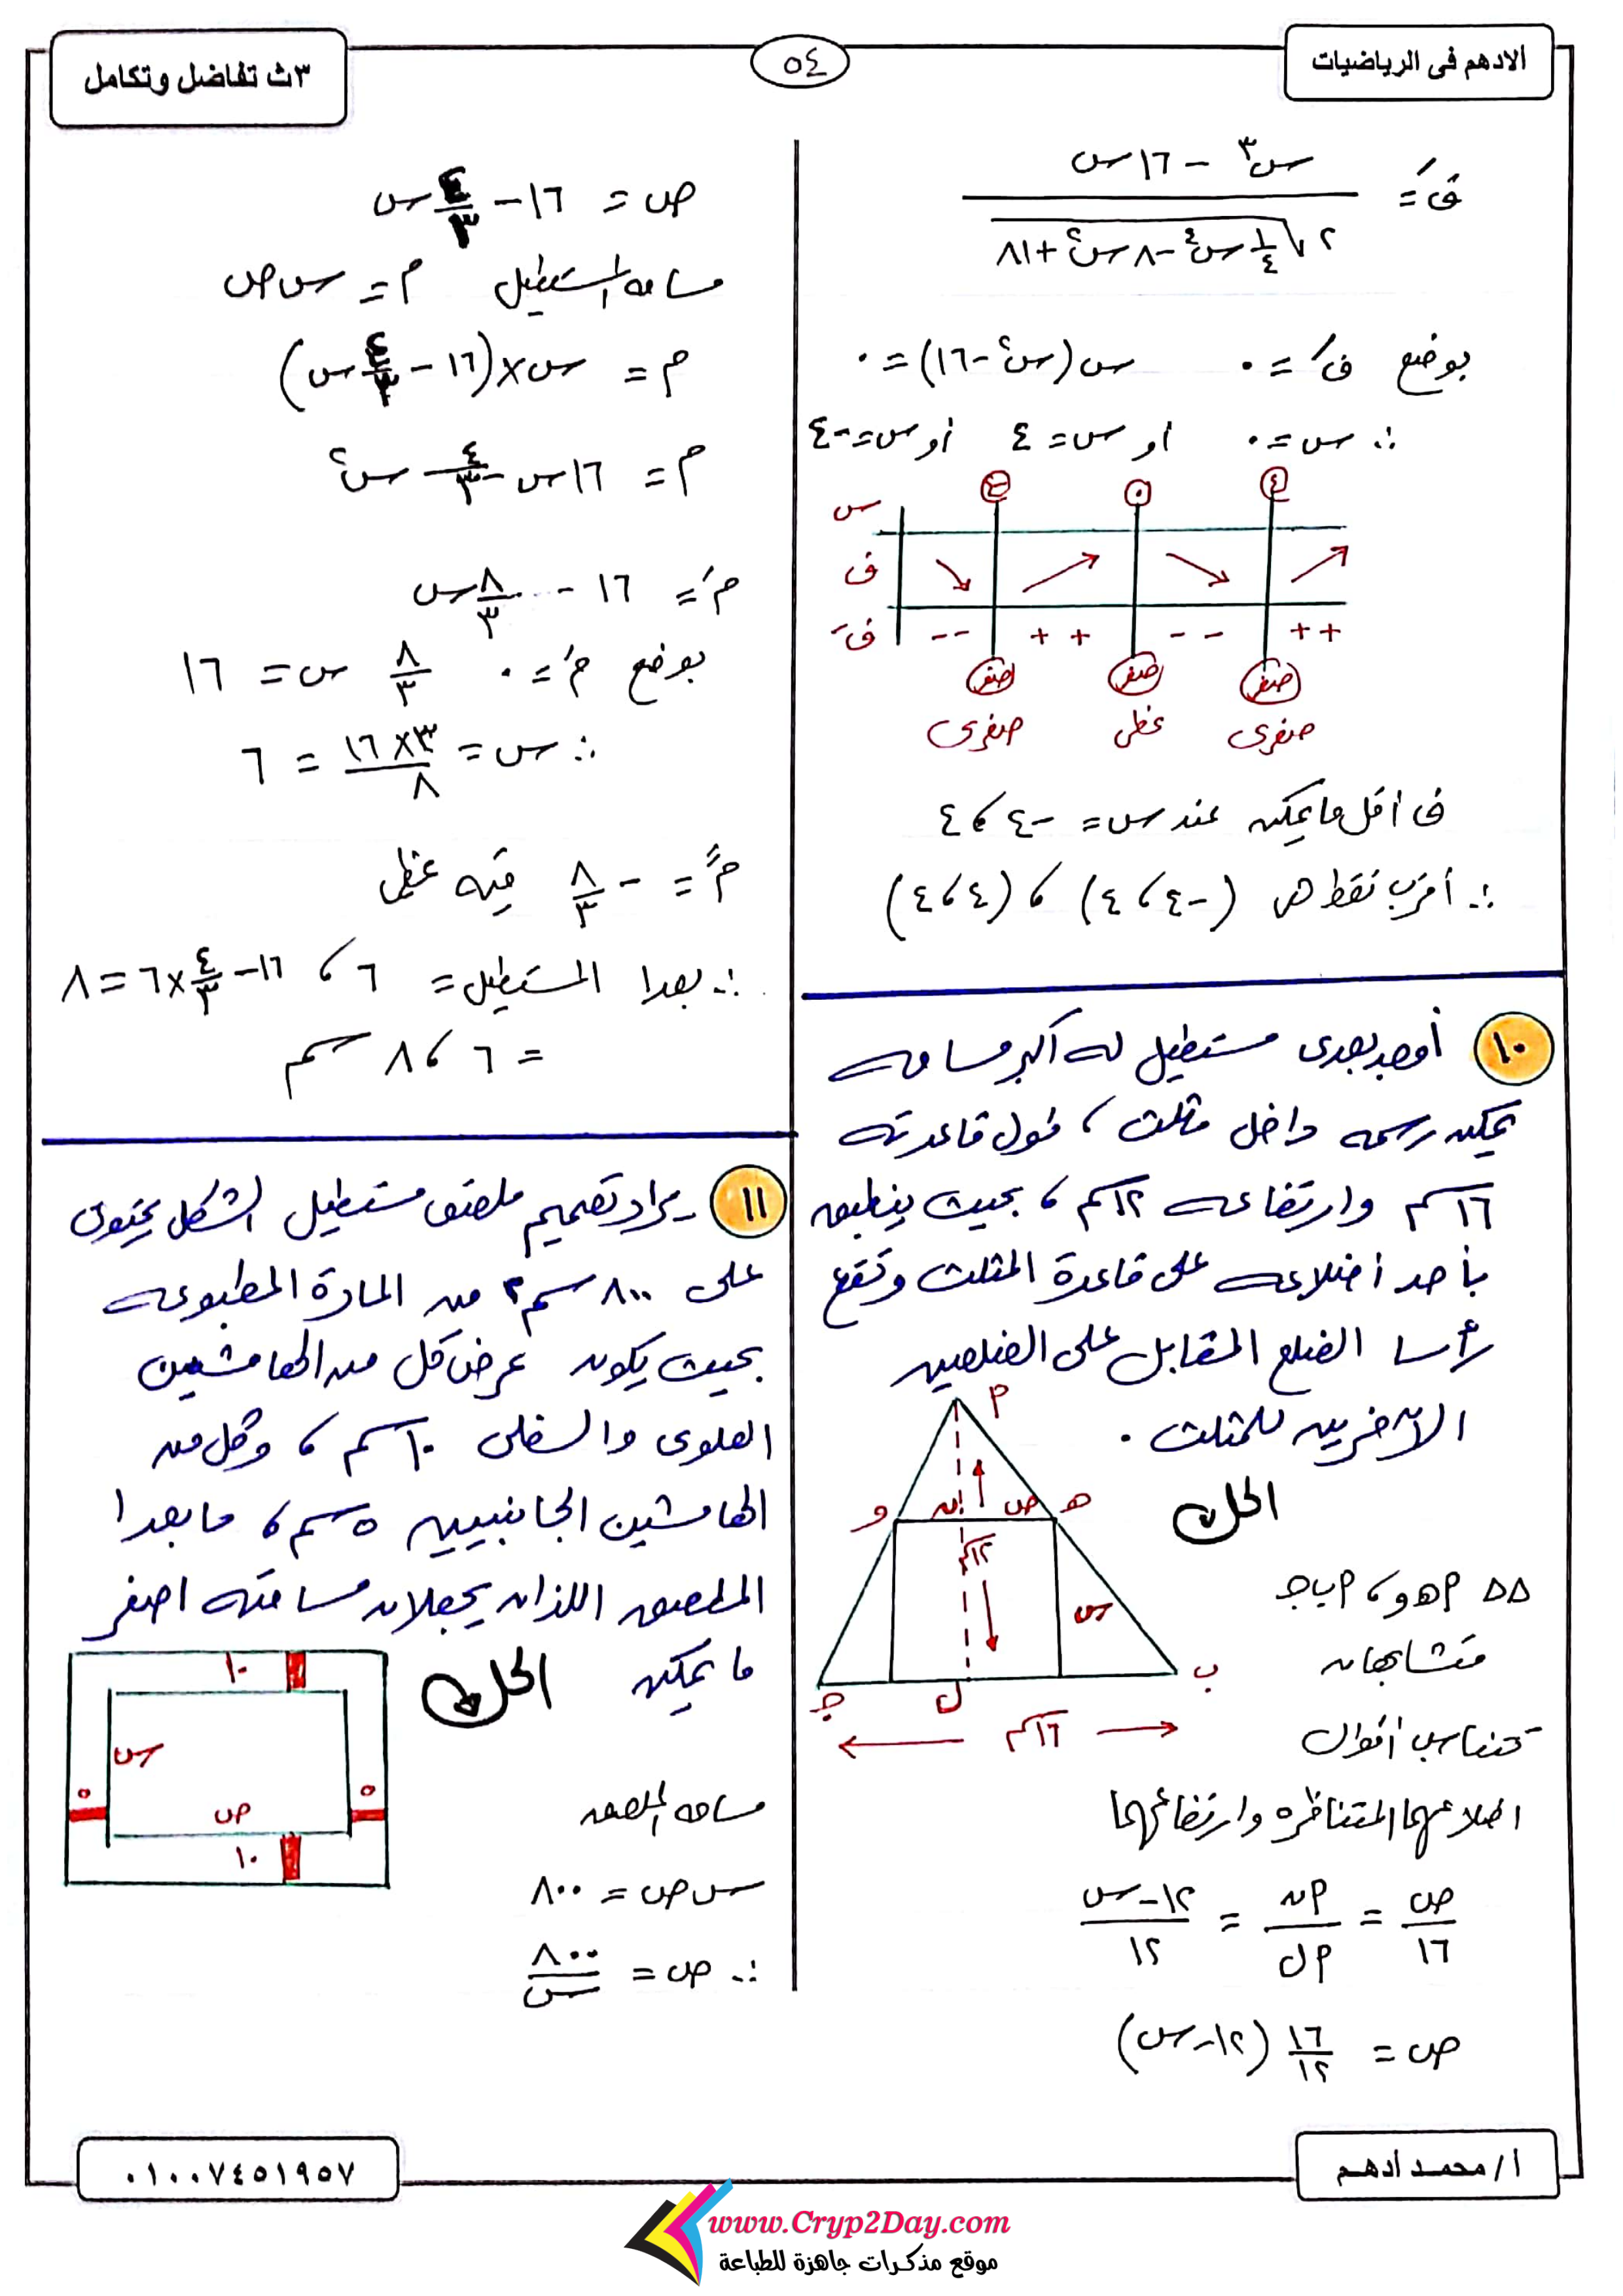 الادهم فى الرياضيات
٥٤
٣ث تفاضل وتكامل
فَ = (س٣ - ١٦س) / (٢√(١/٤ س٤ - ٨س٢ + ٨١))
بوضع فَ = ٠ س(س٢ - ١٦) = ٠
∴ س = ٠ أو س = ٤ أو س = -٤
س -٤ ٠ ٤
ف
فَ -- ++ -- ++
صفر صفر صفر
صغرى عظمى صغرى
ف أقل ما يمكن عند س = -٤ ، ٤
∴ أقرب نقط هى (-٤ ، ٤) ، (٤ ، ٤)
١٠ أوجد بعدى مستطيل له أكبر مساحه
يمكن رسمه داخل مثلث ، طول قاعدته
١٦سم وارتفاعه ١٢سم ، بحيث ينطبق
بأحد أضلاعه على قاعدة المثلث وتقع
رأسا الضلع المقابل على الضلعين
الآخرين للمثلث .
الحل
أ
و ن ص هـ
١٢سم
س
جـ ل ب
١٦سم
∆∆ أهـ و ، أ ب جـ
متشابهان
تتناسب أطوال
اضلاعهما المتناظره وارتفاعهما
ص/١٦ = أن/أل = (١٢-س)/١٢
ص = ١٦/١٢ (١٢-س)
ص = ١٦ - ٤/٣ س
مساحه المستطيل م = س ص
م = س × (١٦ - ٤/٣ س)
م = ١٦س - ٤/٣ س٢
مَ = ١٦ - ٨/٣ س
بوضع مَ = ٠ ٨/٣ س = ١٦
∴ س = (٣×١٦)/٨ = ٦
مً = -٨/٣ قيمه عظمى
∴ بعدا المستطيل = ٦ ، ١٦ - ٤/٣ ×٦ = ٨
= ٦ ، ٨ سم
١١ يراد تصميم ملصق مستطيل الشكل يحتوى
على ٨٠٠ سم٢ من المادة المطبوعه
بحيث يكون عرض كل من الهامشين
العلوى والسفلى ١٠سم ، وكل من
الهامشين الجانبيين ٥سم ، ما بعدا
الملصق اللذان يجعلان مساحته اصغر
ما يمكن الحل
١٠
س
٥ ص ٥
١٠
مساحه الملصق
س ص = ٨٠٠
∴ ص = ٨٠٠/س
أ/ محمد أدهم
٠١٠٠٧٤٥١٩٥٧
www.Cryp2Day.com
موقع مذكرات جاهزة للطباعة